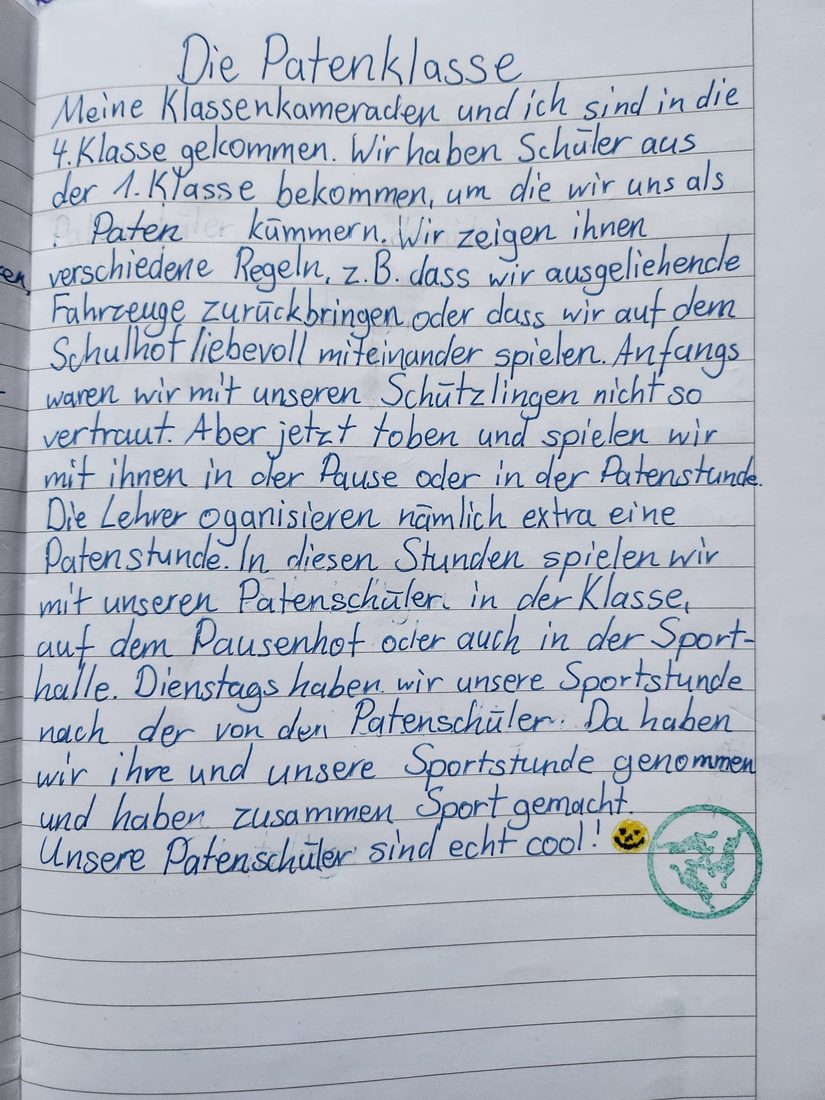 Die Patenklasse
Meine Klassenkameraden und ich sind in die
4. Klasse gekommen. Wir haben Schüler aus
der 1. Klasse bekommen, um die wir uns als
Paten kümmern. Wir zeigen ihnen
verschiedene Regeln, z.B. dass wir ausgeliehende
Fahrzeuge zurückbringen oder dass wir auf dem
Schulhof liebevoll miteinander spielen. Anfangs
waren wir mit unseren Schützlingen nicht so
vertraut. Aber jetzt toben und spielen wir
mit ihnen in der Pause oder in der Patenstunde.
Die Lehrer oganisieren nämlich extra eine
Patenstunde. In diesen Stunden spielen wir
mit unseren Patenschüler in der Klasse,
auf dem Pausenhof oder auch in der Sport-
halle. Dienstags haben wir unsere Sportstunde
nach der von den Patenschüler. Da haben
wir ihre und unsere Sportstunde genommen
und haben zusammen Sport gemacht.
Unsere Patenschüler sind echt cool!